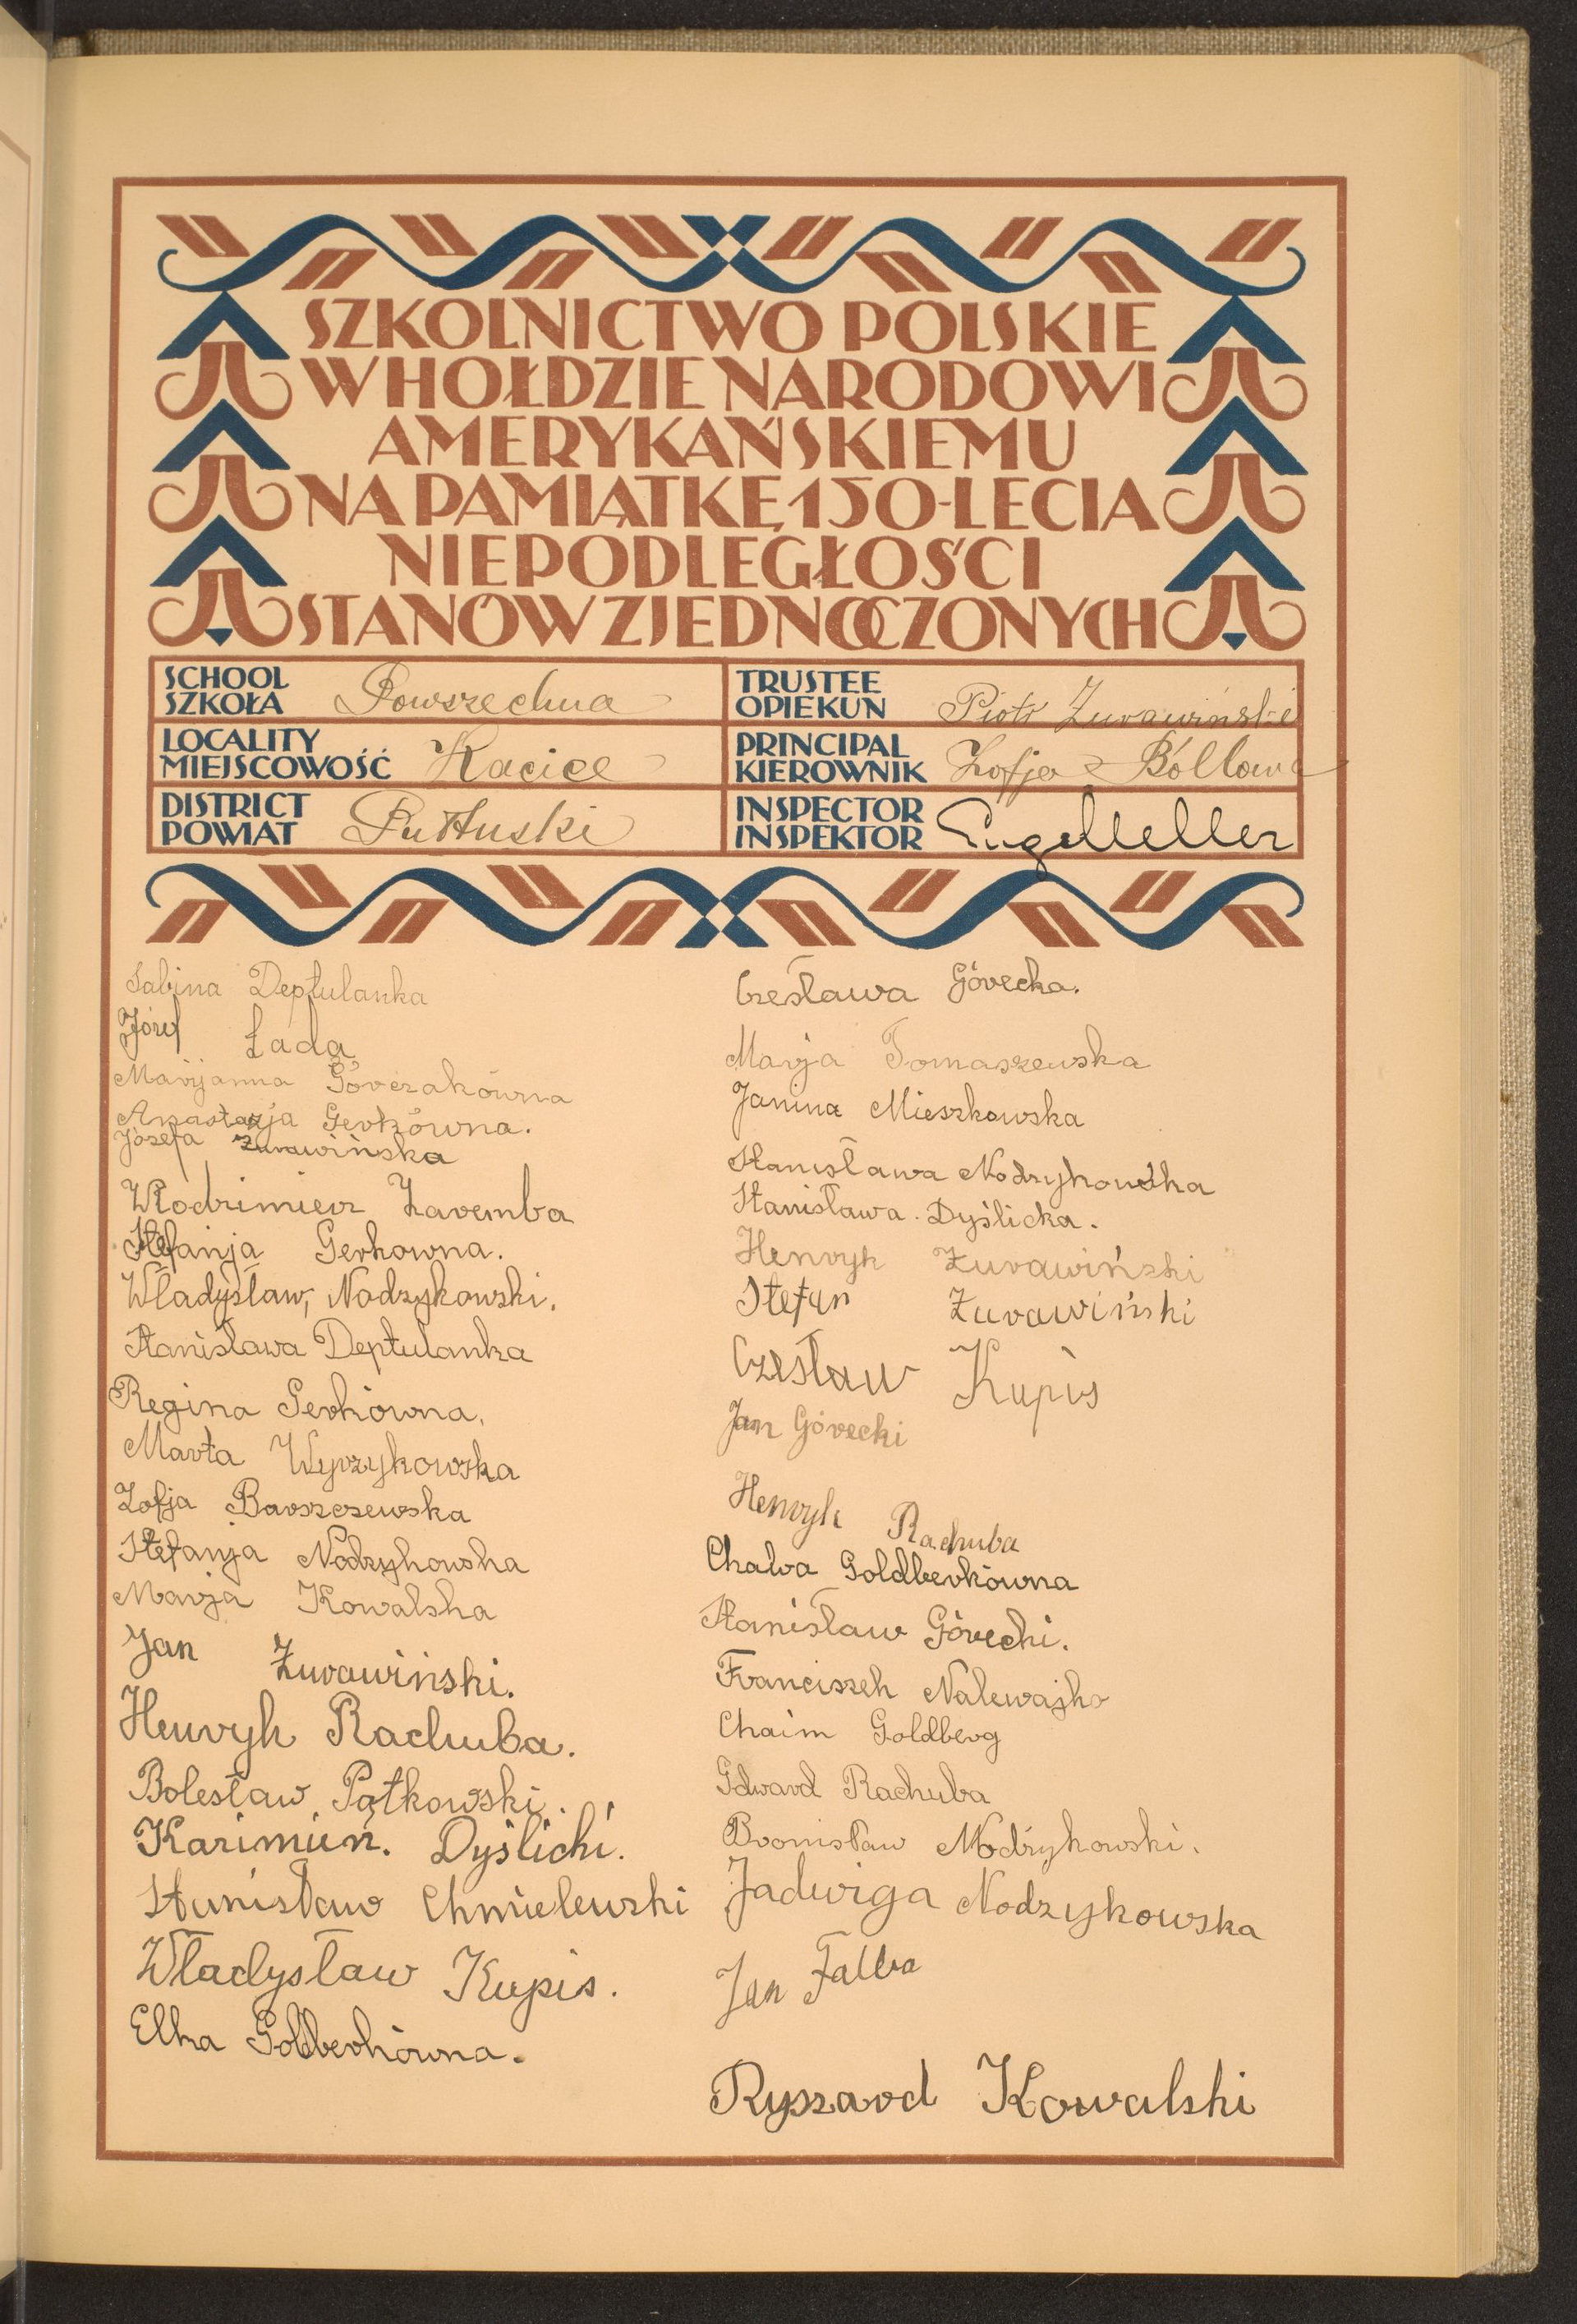 SZKOLNICTWO POLSKIE
W HOŁDZIE NARODOWI
AMERYKAŃSKIEMU
NA PAMIĄTKĘ 150-LECIA
NIEPODLEGŁOŚCI
STANÓW ZJEDNOCZONYCH
SCHOOL
SZKOŁA Powszechna
TRUSTEE
OPIEKUN Piotr Żurawiński
LOCALITY
MIEJSCOWOŚĆ Kacice
PRINCIPAL
KIEROWNIK Zofja Bóllowa
DISTRICT
POWIAT Pułtuski
INSPECTOR
INSPEKTOR
Sabina Deptulanka
Józef Łada
Maryjanna Górczakówna
Anastazja Gerkówna.
Józefa Żurawińska
Włodzimierz Zaremba
Stefanja Gerkowna.
Władysław, Nodzykowski.
Stanisława Deptulanka
Regina Gerkówna.
Marta Wyrzykowska
Zofja Barszczewska
Stefanja Nodzykowska
Marja Kowalska
Jan Żurawiński.
Henryk Rachuba.
Bolesław Pątkowski.
Kazimierz. Dyślicki.
Stanisław Chmielewski
Władysław Kupis.
Elka Goldberkówna.
Czesława Górecka.
Marja Tomaszewska
Janina Mieszkowska
Stanisława Nodzykowska
Stanisława Dyślicka.
Henryk Żurawiński
Stefan Żurawiński
Czesław Kupis
Jan Górecki
Henryk Rachuba
Chawa Goldberkówna
Stanisław Górecki.
Franciszek Nalewajko
Chaim Goldberg
Edward Rachuba
Bronisław Nodzykowski.
Jadwiga Nodzykowska
Jan Falba
Ryszard Kowalski